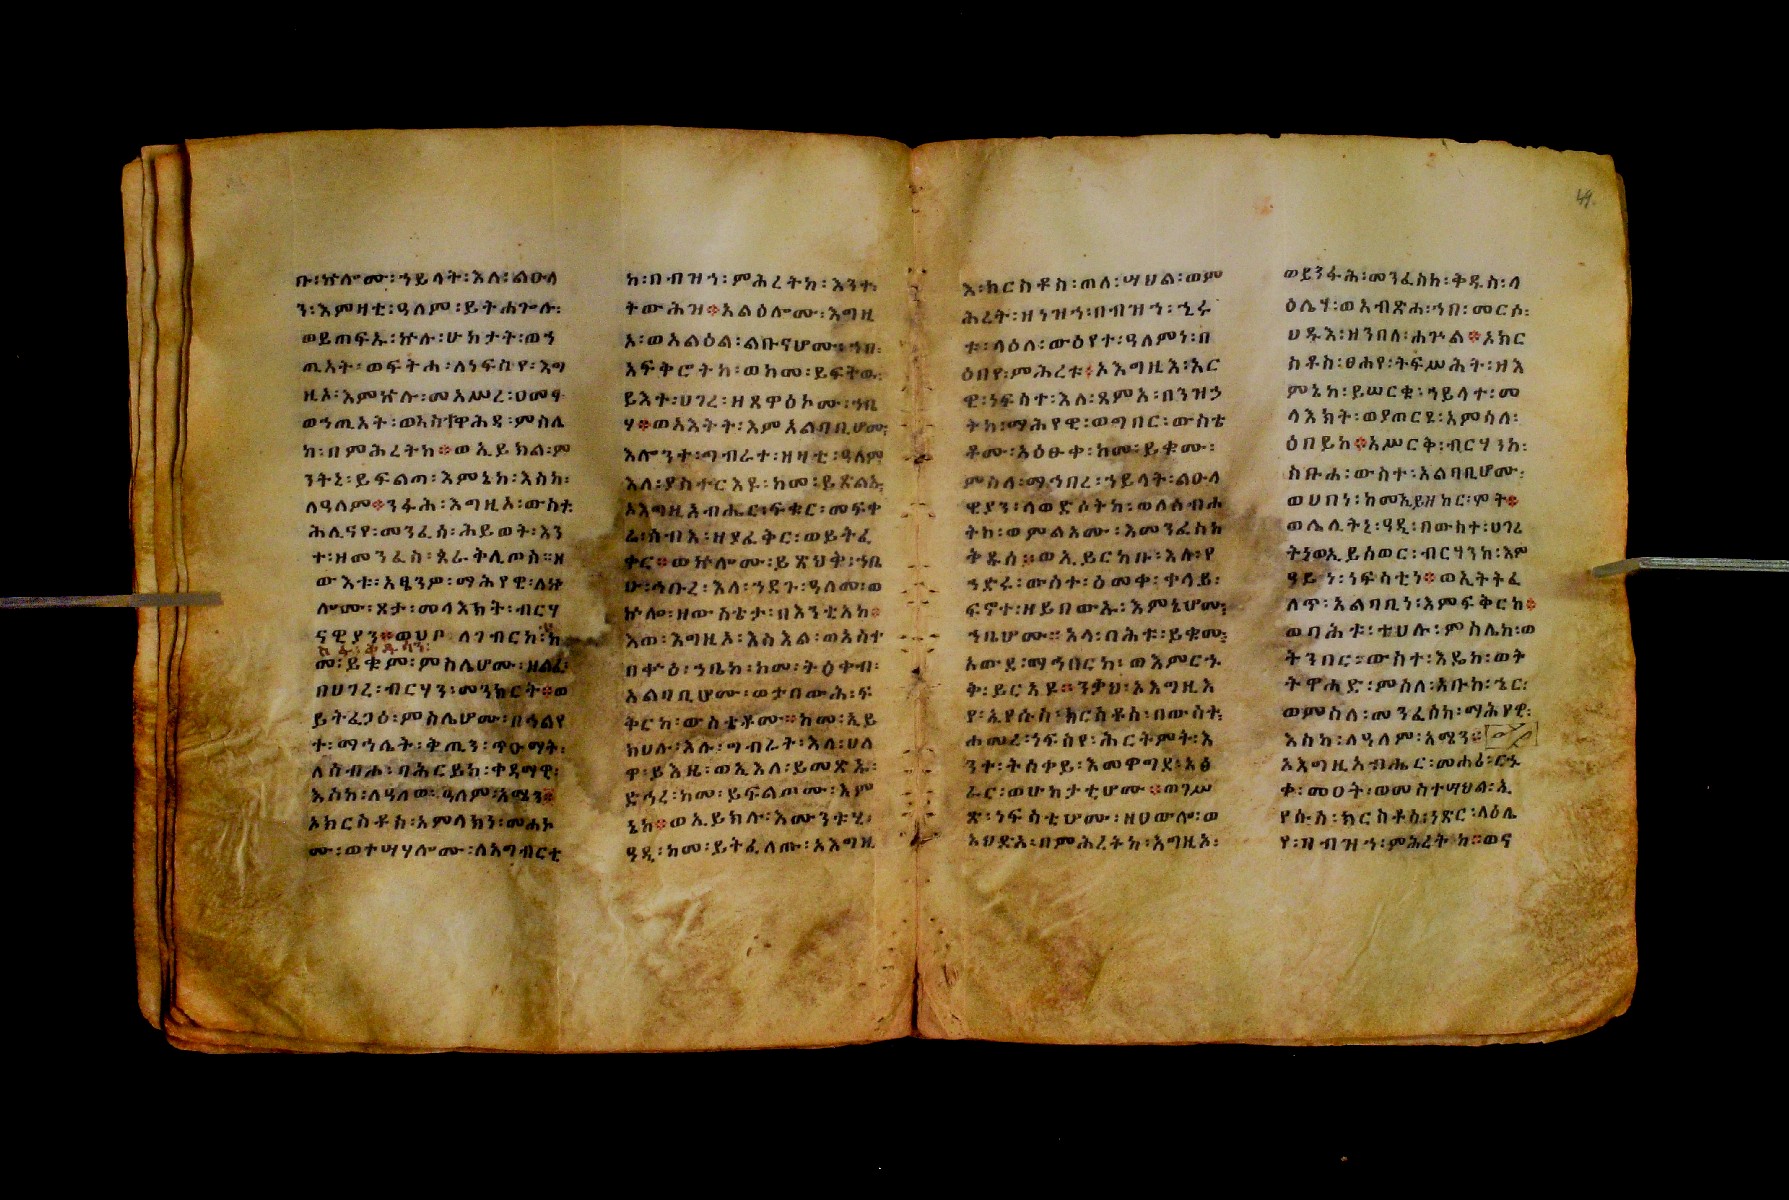 ቡ፡ኵሎሙ፡ኀይላት፡እለ፡ልዑላ
ን፡እምዛቲ፡ዓለም፡ይትሐጐሉ፡
ወይጠፍኡ፡ኵሉ፡ሁከታት፡ወኀ
ጢአት፡ወፍትሐ፡ለነፍስየ፡እግ
ዚኦ፡እምኵሉ፡መአሥረ፡ዐመፃ
ወኀጢአት፡ወአስተዋሕዳ፡ምስሌ
ከ፡በምሕረትከ፨ወኢይክል፡ም
ንትኒ፡ይፍልጣ፡እምኔከ፡እስከ፡
ለዓለም፨ንፋሕ፡እግዚኦ፡ውስተ
ሕሊናየ፡መንፈሰ፡ሕይወት፡እን
ተ፡ዘመንፈስ፡ጰራቅሊጦስ።ዘ
ውእቱ፡አፄንዎ፡ማሕየዊ፡ለኵ
ሎሙ፡ጾታ፡መላእክት፡ብርሃ
ናዊያን፨ወሀቦ ለገብርከ፡ከ
ኪ ፋ፡ቅዱሳን፡
መ፡ይቁም፡ምስሌሆሙ፡ዘልፈ፡
በሀገረ፡ብርሃን፡መንክርት፨ወ
ይትፈጋዕ፡ምስሌሆሙ፡በኅልየ
ተ፡ማኅሌት፡ቅጢን፡ጥዑማት፡
ለስብሐ፡ባሕርይከ፡ቀዳማዊ፡
እስከ፡ለዓለመ፡ዓለም፡አሜን፨
ኦክርስቶስ፡አምላክን፡መሐሮ
ሙ፡ወተሣሃሎሙ፡ለአግብርቲ
ከ፡በብዝኀ፡ምሕረትከ፡እንተ፡
ትውሕዝ፨አልዕሎሙ፡እግዚ
ኦ፡ወአልዕል፡ልቡናሆሙ፡ኀበ፡
አፍቅሮትከ፡ወከመ፡ይፍትዉ፡
ይእት፡ሀገረ፡ዘጸዋዕኮሙ፡ኀቤ
ሃ፨ወአእትት፡እምአልባቢሆሙ፡
እሎንተ፡ግብራተ፡ዘዛቲ፡ዓለም
እለ፡ያስተርእዩ፡ከመ፡ይጽልኡ፡
ኦእግዚአብሔር፡ፍቁር፡መፍቀ
ሬ፡ሰብእ፡ዘያፈቅር፡ወይትፈ
ቀር፨ወኵሎሙ፡ይጼህቅ፡ኀበ
ሁ፡ኅቡረ፡እለ፡ኀደጉ፡ዓለመ፡ወ
ኵሎ፡ዘውስቴታ፡በእንቲአከ፨
እወ፡እግዚኦ፡እስእል፡ወአስተ
በቍዕ፡ኀቤከ፡ከመ፡ትዕቀብ፡
አልባቢሆሙ፡ወታበውሕ፡ፍ
ቅርከ፡ውስቴቶሙ።ከመ፡ኢይ
ክሀሉ፡እሉ፡ግብራት፡እለ፡ሀለ
ዋ፡ይእዜ፡ወኢእለ፡ይመጽኡ፡
ድኅረ፡ከመ፡ይፍልጦሙ፡እም
ኔከ፨ወኢይክሉ፡እሙንቱሂ፡
ዓዲ፡ከመ፡ይትፈለጡ፡እእግዚ
እ፡ክርስቶስ፡ጠለ፡ሣህል፡ወም
ሕረት፡ዘነዝኀ፡በብዝኀ፡ኂሩ
ቱ፡ላዕለ፡ውዕየተ፡ዓለምነ፡በ
ዕበየ፡ምሕረቱ፨ኦእግዚእ፡አር
ዊ፡ነፍስተ፡እለ፡ጸምአ፡በንዝኃ
ትከ፡ማሕየዊ፡ወግበር፡ውስቴ
ቶሙ፡አዕፁቀ፡ከመ፡ይቁሙ፡
ምስለ፡ማኅበረ፡ኀይላት፡ልዑላ
ዊያን፡ላወድሶትከ፡ወለስብሐ
ትከ፡ወምልአሙ፡እመንፈስከ
ቅዱስ፨ወኢይርከቡ፡እሉ፡የ
ኀድሩ፡ውስተ፡ዕመቀ፡ቀላይ፡
ፍኖተ፡ዘይበውኡ፡እምኔሆሙ፡
ኀቤሆሙ።አላ፡በሕቱ፡ይቁሙ፡
አውደ፡ማኅበርከ፡ወእምርኁ
ቅ፡ይርአዩ።ንቃህ፡ኦእግዚእ
የ፡ኢየሱስ፡ክርስቶስ፡በውስተ፡
ሐመረ፡ነፍስየ፡ሕርትምት፡እ
ንተ፡ትሰቀይ፡እመዋግደ፡አፅ
ራር፡ወሁከታቲሆሙ፨ወገሥ
ጽ፡ነፍስቲሆሙ፡ዘሀውሎ፡ወ
አህድእ፡በምሕረትከ፡እግዚኦ፡
ወይንፋሕ፡መንፈስከ፡ቅዱስ፡ላ
ዕሌሃ፡ወአብጽሐ፡ኀበ፡መርሶ፡
ህዱእ፡ዘንበለ፡ሐጕል፨ኦክር
ስቶስ፡ፀሐየ፡ትፍሥሕት፡ዘእ
ምኔከ፡ይሠርቁ፡ኀይላተ፡መ
ላእክት፡ወያጠርዩ፡አምሳለ፡
ዕበይከ፨አሥርቅ፡ብርሃንከ፡
ስቡሐ፡ውስተ፡አልባቢሆሙ፡
ወሀበነ፡ከመኢይዘከር፡ሞት፨
ወሌሊትኒ፡ዓዲ፡በውስተ፡ሀገረ
ትኒወኢይሰወር፡ብርሃንከ፡እም
ዓይነ፡ነፍስቲነ፨ወኢትትፈ
ለጥ፡አልባቢነ፡እምፍቅርከ፨
ወባሕቱ፡ቱሀሉ፡ምስሌከ፡ወ
ትንበር።ውስተ፡እዴከ፡ወት
ትዋሐድ፡ምስለ፡አቡከ፡ኄር፡
ወምስለ፡መንፈስከ፡ማሕየዊ፡
እስከ፡ለዓለም፡አሜን።
ኦእግዚአብሔር፡መሐሪ፡ርኁ
ቀ፡መዐት፡ወመስተሣህል፡ኢ
የሱስ፡ክርስቶስ፡ነጽር፡ላዕሌ
የ፡በብዝኀ፡ምሕረትከ።ወና